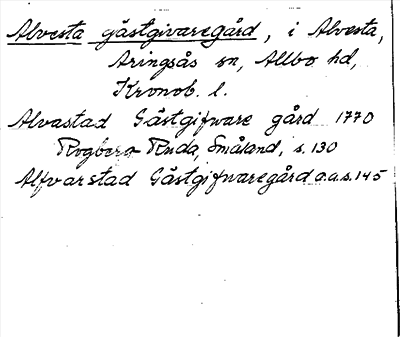 Alvesta gästgivaregård, i Alvesta,
Aringsås sn, Allbo hd,
Kronob. l.
Alvastad Gästgifware gård 1770
Rogberg Ruda, Småland, s. 130
Alfvarstad Gästgifwaregård a.a.s. 145